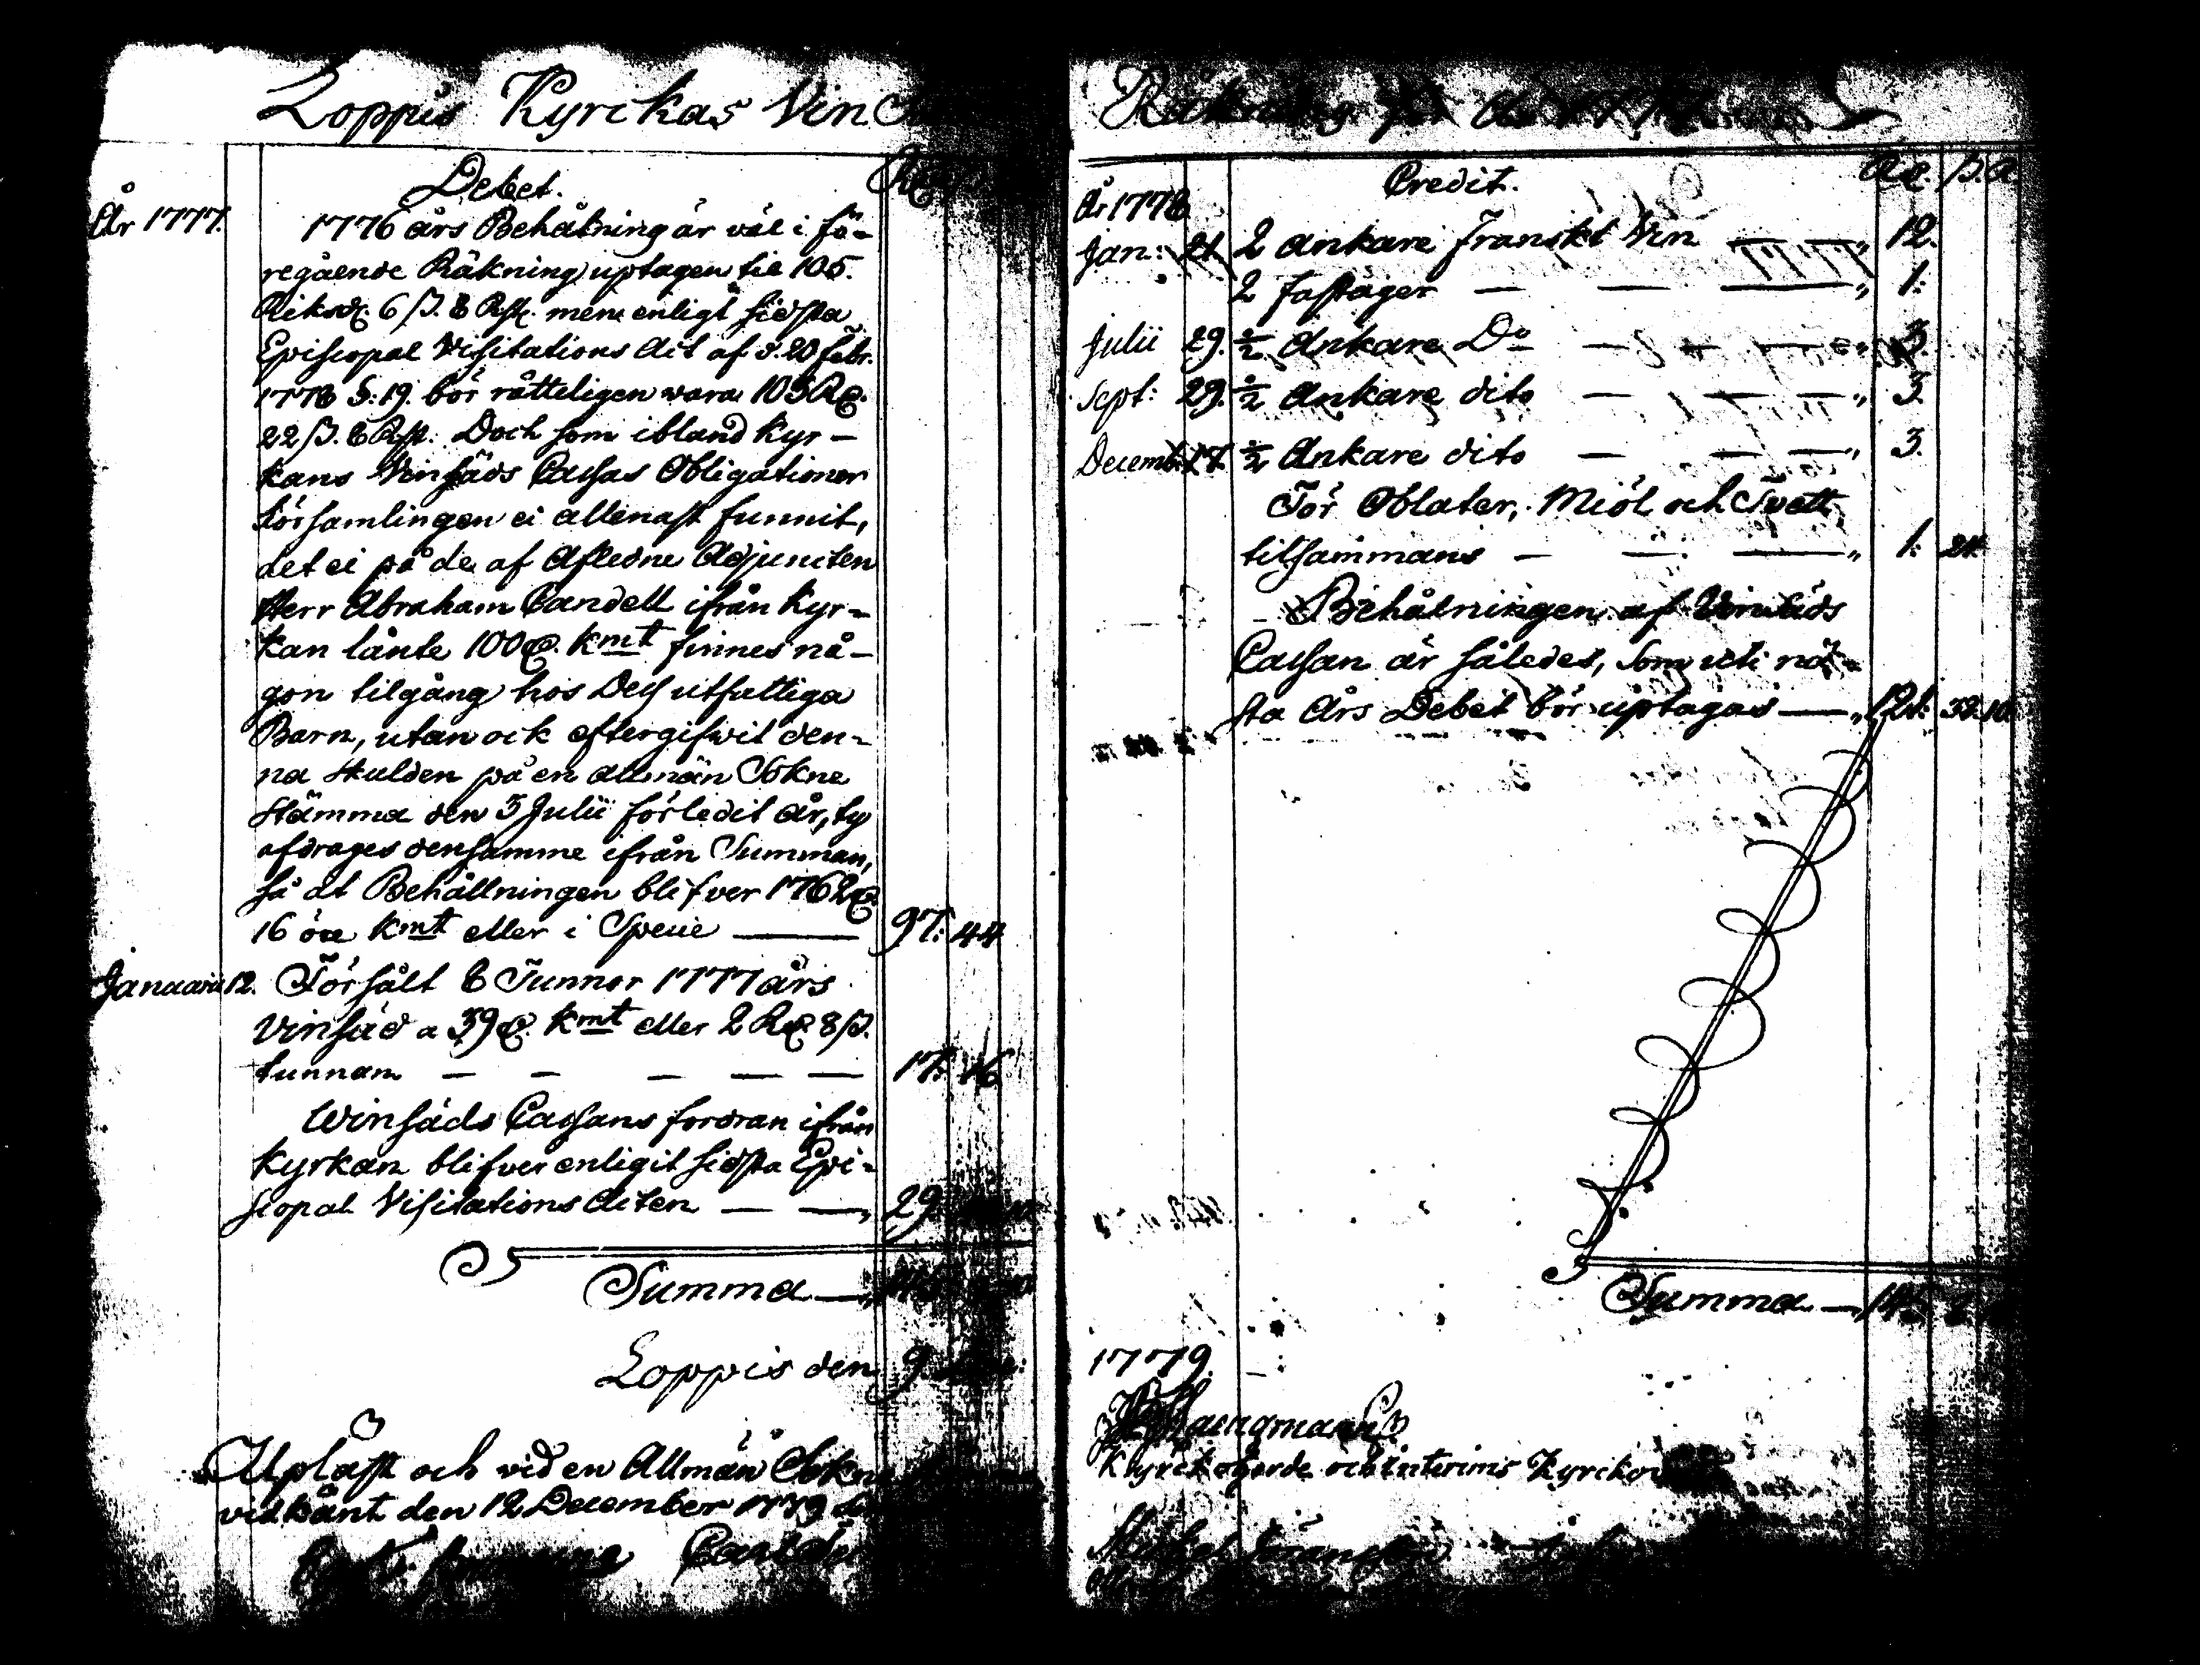 Loppis Kyrckas Vin
Debet.
År 1777. 1776 års Behålning är väl i fö-
regående Räkning uptagen til 105.
Riksd. 6 ß. 8 Rst. men enligt sidsta
Episcopal Visitations Act af d. 20 Febr.
1778 §. 19. bör rätteligen wara 103 Rd.
22 ß. 8 Rst. Doch som ibland Kyr-
kans Vinsäds Cassas Obligationer
Församlingen ei allenast funnit,
det ei på de af Afledne Adjuncten
Herr Abraham Candell ifrån Kyr-
kan lånte 100 D. Kmt finnes nå-
gon tilgång hos Dess utfattiga
Barn, utan ock eftergifwit den-
na Skulden på en allmän Sokne
Stämma den 3 Julii förledit år, ty
afdrages densamme ifrån Summan,
så at Behållningen blifver 1762 D.
16 öre Kmt eller i Specie — 97: 44
Januarii 12. Försålt 8 Tunnor 1777 års
Vinsäd a 39 D. Kmt eller 2 Rd 8 ß.
tunnan — — — — — 17: 16
Winsäds Cassans fordran ifrån
Kyrkan blifver enligit sidsta Epi-
scopal Visitations Acten — — 29
Summa —
Loppis den 9.
Upläst och vid en Allmän Sokne
vidkänt den 12 December 1779
Räkning för
Credit. Rd. ß. R.
År 1778
Jan: 21 2 Ankare Franskt Vin — — 12.
2 Fastager — — — 1:
Julii 29. ½ Ankare Do — — — 3.
Sept: 29. ½ Ankare dito — — — 3.
Decemb: 17. ½ Ankare dito — — — 3.
För Oblater, Miöl och Tvätt
tilsammans — — — 1: 24
Behålningen af Vinsäds
Cassan är således, som uti nä-
sta års Debet bör uptagas — 121: 32. 10.
Summa — 145
1779.
Kyrckoherde och Interims Kyrckov